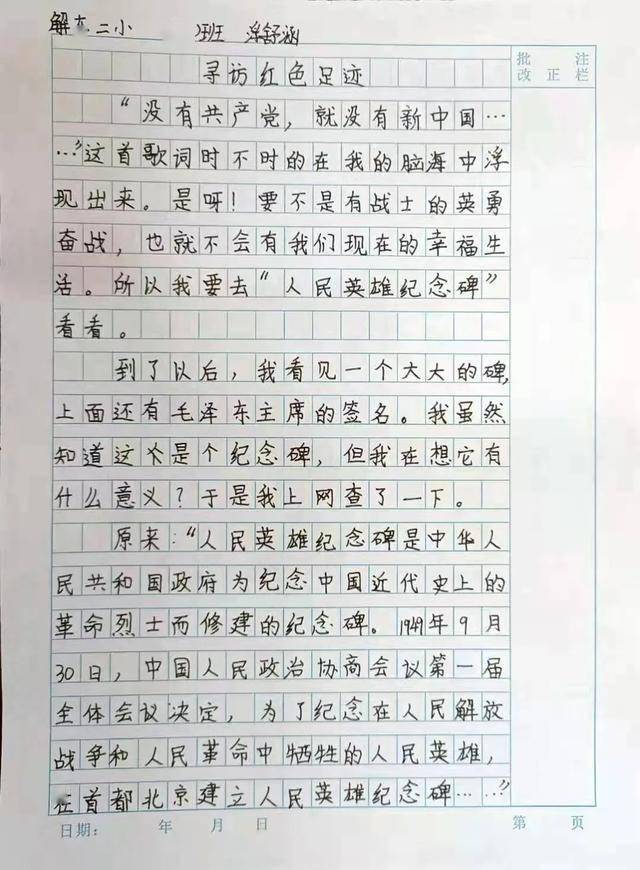 解大.二小 班 浮舒涵
批 注
改 正 栏
寻访红色足迹
“没有共产党，就没有新中国…
…”这首歌词时不时的在我的脑海中浮
现出来。是呀！要不是有战士的英勇
奋战，也就不会有我们现在的幸福生
活。所以我要去“人民英雄纪念碑”
看看。
到了以后，我看见一个大大的碑，
上面还有毛泽东主席的签名。我虽然
知道这是个纪念碑，但我在想它有
什么意义？于是我上网查了一下。
原来：“人民英雄纪念碑是中华人
民共和国政府为纪念中国近代史上的
革命烈士而修建的纪念碑。1949年9月
30日，中国人民政治协商会议第一届
全体会议决定，为了纪念在人民解放
战争和人民革命中牺牲的人民英雄，
在首都北京建立人民英雄纪念碑……”
日期： 年 月 日 第 页